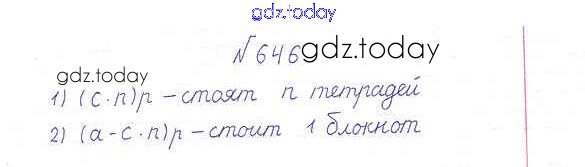 gdz.today
№646 gdz.today
gdz.today
1) (c·n)р – стоят n тетрадей
2) (a-c·n)р – стоит 1 блокнот